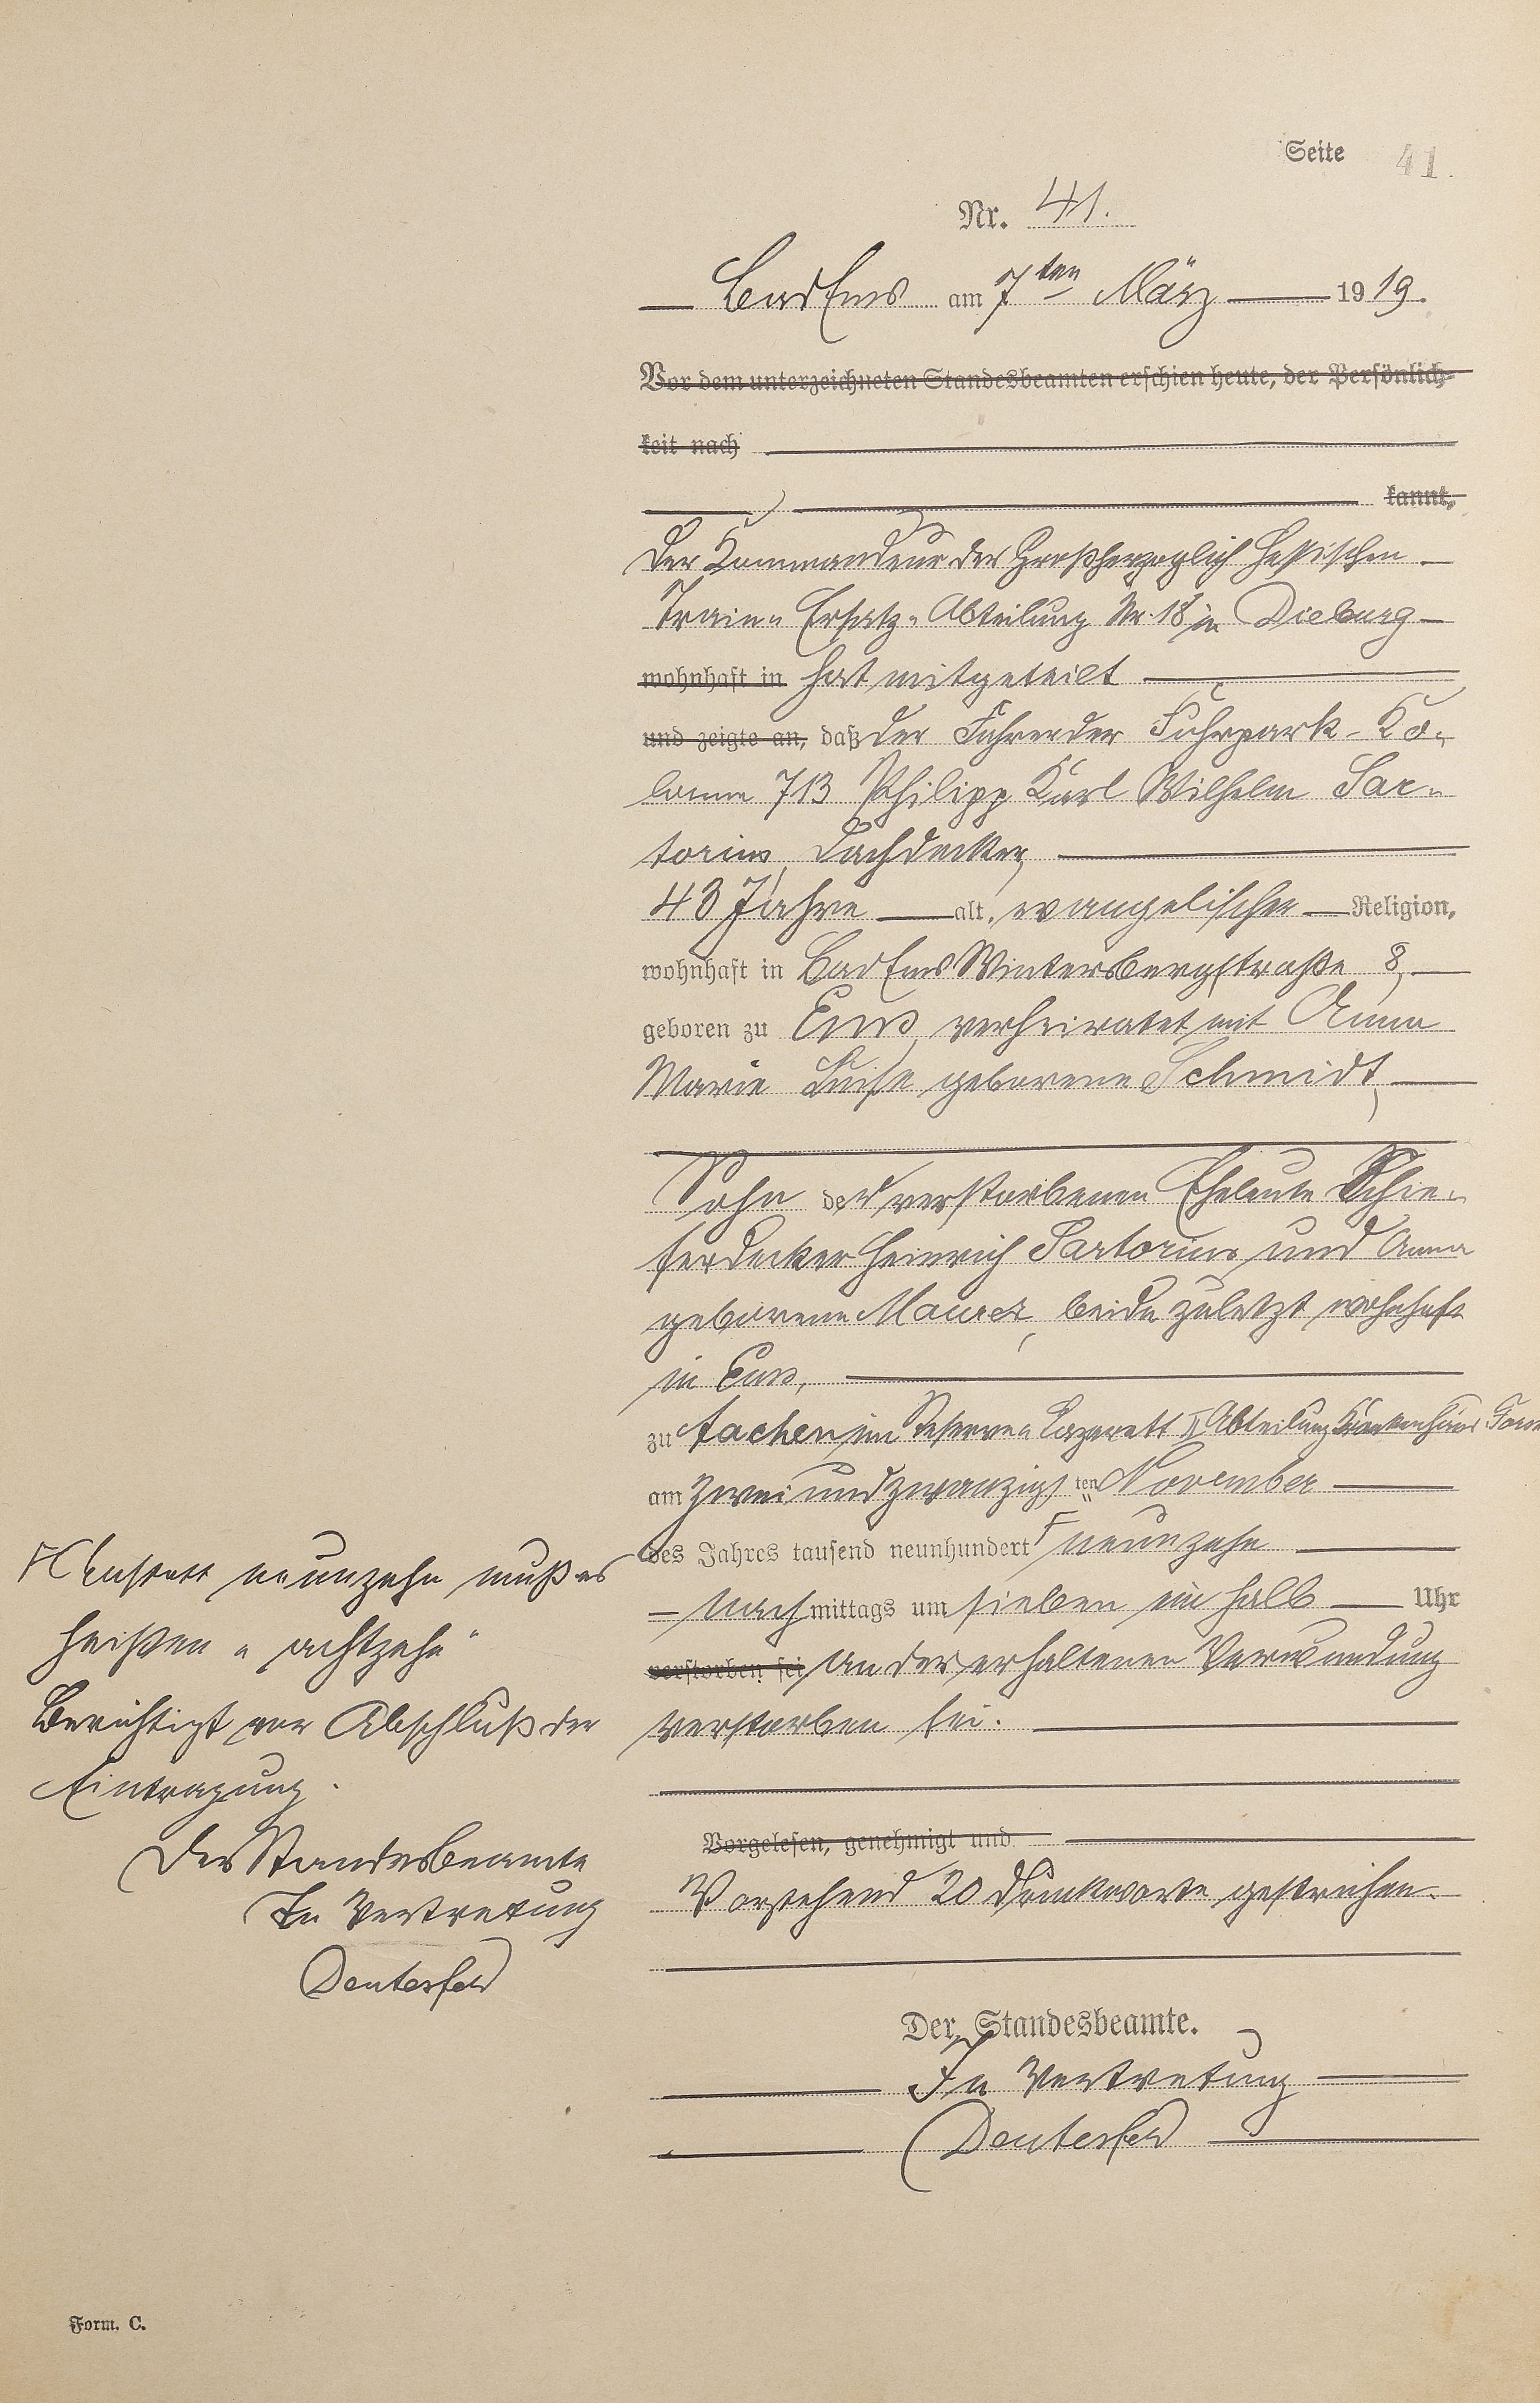 Seite 41.
Nr. 41.
Bad Ems am 7ten März 1919.
Vor dem unterzeichneten Standesbeamten erschien heute, der Persönlich-
keit nach
kannt,
Der Kommandeur der Großherzoglich Hessischen
Train-Ersatz-Abteilung Nr. 18 in Dieburg
wohnhaft in hat mitgeteilt
und zeigte an, daß der Fahrer der Fuhrpark-Ko-
lonne 713 Philipp Karl Wilhelm Sar-
torius, Dachdecker,
43 Jahre alt, evangelischer Religion,
wohnhaft in Bad Ems Wintersbergstraße 8,
geboren zu Ems, verheiratet mit Anna
Marie Luise geborene Schmidt,
Sohn der verstorbenen Eheleute Schie-
ferdecker Heinrich Sartorius und Anna
geborene Maurer, beide zuletzt wohnhaft
in Ems,
zu Aachen im Reserve-Lazarett II Abteilung Krankenhaus
am zweiundzwanzigsten November
des Jahres tausend neunhundert neunzehn
nachmittags um sieben ein halb Uhr
verstorben sei an der erhaltenen Verwundung
verstorben sei.
Vorgelesen, genehmigt und
Vorstehend 20 Druckworte gestrichen.
Der Standesbeamte.
In Vertretung
Deutesfeld
Anstatt neunzehn muß es
heißen „achtzehn"
Berichtigt vor Abschluß der
Eintragung.
Der Standesbeamte
In Vertretung
Deutesfeld
Form. C.